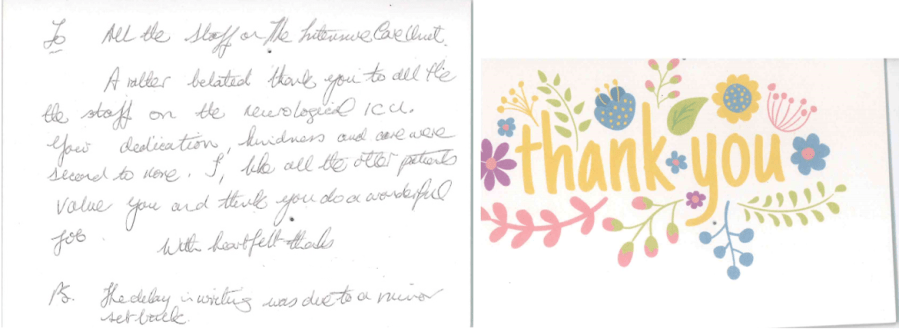 To All the staff on The Intensive Care Unit.
A rather belated thank you to all the
the staff on the neurological ICU.
Your dedication, kindness and care were
second to none. I, like all the other patients
value you and think you do a wonderful
job.
With heartfelt thanks
PS. The delay in writing was due to a minor
set back.
thank you